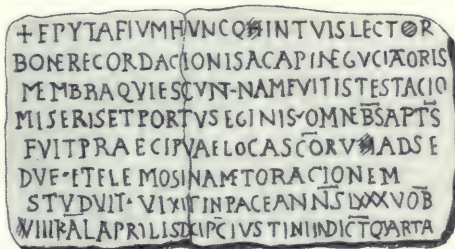 + EPYTAFIVM HVNC QVINTVIS LECTOR
BONE RECORDACIONIS AGAPI NEGVCIATORIS
MEMBRA QVIESCVNT· NAM FVIT ISTE STACIO
MISERIS ET PORTVS EGINIS· OMNEBS APTS
FVIT PRAECIPVAE LOCA SCORVM ADSE
DVE· ET ELEMOSINAM ET ORACIONEM
STVDVIT· VIXIT IN PACE ANNS LXXXV OB
VIIII KAL APRILIS PC IVSTINI INDICT QVARTA